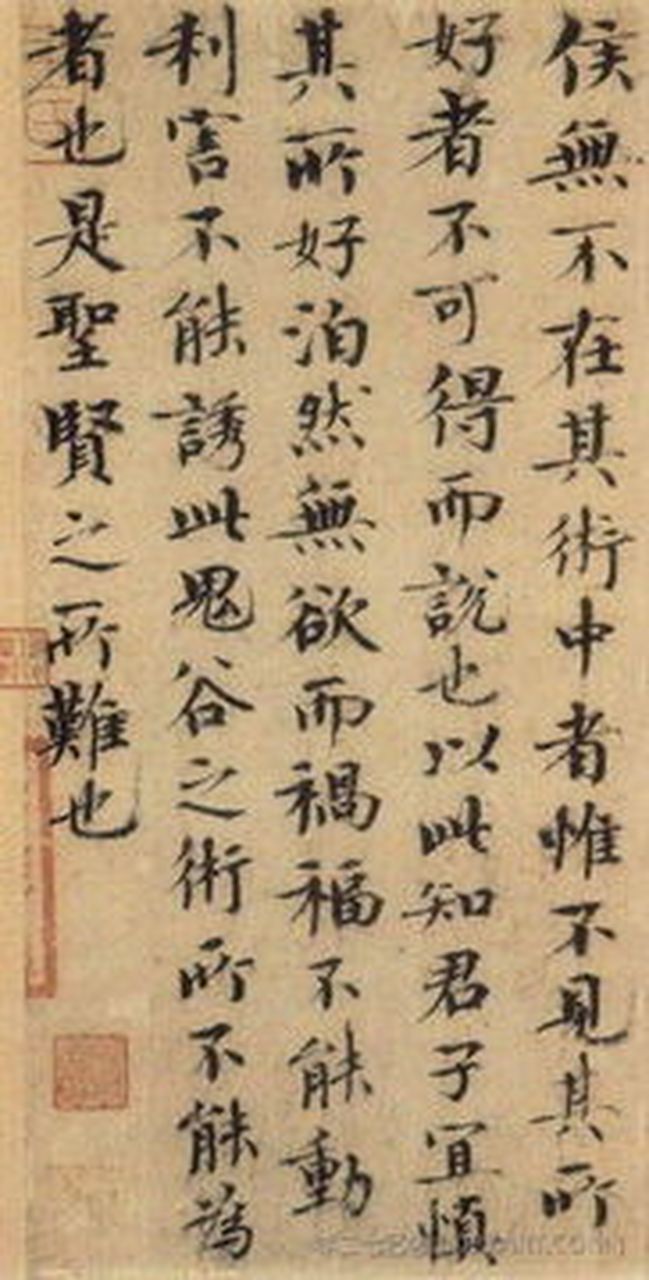 侯無不在其術中者惟不見其所
好者不可得而説也以此知君子宜慎
其所好泊然無欲而禍福不能動
利害不能誘此鬼谷之術所不能為
者也是聖賢之所難也